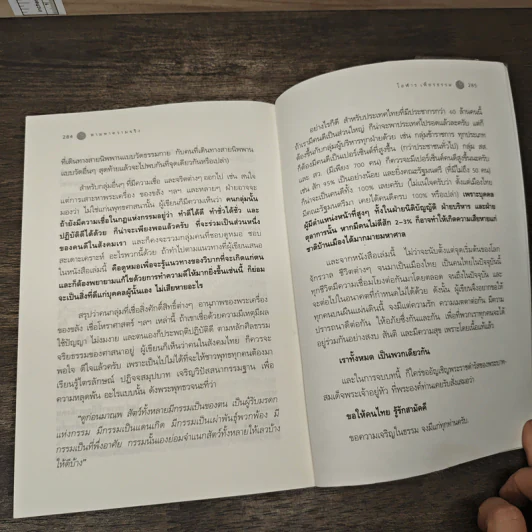 284 ตามหาความจริง
ที่เดินทางสายนิพพานแบบวัตรธรรมกาย กับคนที่เดินทางสายนิพพาน
แบบวัดอื่นๆ สุดท้ายแล้วจะไปพบกันที่จุดเดียวกันหรือเปล่า)
สำหรับกลุ่มอื่นๆ ที่มีความเชื่อ และจริตต่างๆ ออกไป เช่น สนใจ
แต่การเสาะหาพระเครื่อง ของขลัง ฯลฯ และหลายๆ ฝ่ายอาจจะ
มองว่า ไม่ใช่แก่นพุทธศาสนานั้น ผู้เขียนก็มีความเห็นว่า คนกลุ่มนั้น
ถ้ายังมีความเชื่อในกฎแห่งกรรมอยู่ว่า ทำดีได้ดี ทำชั่วได้ชั่ว และ
ปฏิบัติดีได้ด้วย ก็น่าจะเพียงพอแล้วครับ ที่จะร่วมเป็นส่วนหนึ่ง
ของคนดีในสังคมเรา และก็คงจะรวมกลุ่มคนที่ชอบดูหมอ ชอบ
สะเดาะเคราะห์ อะไรพวกนี้ด้วย ถ้านำไปตามแนวทางที่ผู้เขียนเสนอ
ในหนังสือเล่มนี้ คือดูหมอเพื่อจะรู้แนวทางของวิบากที่จะเกิดแก่ตน
และก็ต้องพยายามแก้ไขด้วยการทำความดีให้มากยิ่งขึ้นเช่นนี้ ก็ย่อม
จะเป็นสิ่งที่ดีแก่บุคคลผู้นั้นเอง ไม่เสียหายอะไร
สรุปว่าคนกลุ่มที่เชื่อสิ่งศักดิ์สิทธิ์ต่างๆ อานุภาพของพระเครื่อง
ของขลัง เชื่อโหราศาสตร์ ฯลฯ เหล่านี้ ถ้าเขาเชื่อด้วยความมีเหตุมีผล
ใช้ปัญญา ไม่งมงาย และตนเองก็ประพฤติปฏิบัติดี ตามหลักศีลธรรม
จริยธรรมของศาสนาอยู่ ผู้เขียนก็เห็นว่าคนในสังคมไทย ก็ควรจะ
พอใจ ดีใจแล้วครับ เพราะเป็นไปไม่ได้ที่จะให้ชาวพุทธทุกคนต้องมา
เรียนรู้ไตรลักษณ์ ปฏิจจสมุปบาท เจริญวิปัสสนากรรมฐาน เพื่อ
ความหลุดพ้น อะไรแบบนั้น ดังพระพุทธวจนะที่ว่า
"ดูก่อนมาณพ สัตว์ทั้งหลายมีกรรมเป็นของตน เป็นผู้รับมรดก
แห่งกรรม มีกรรมเป็นแดนเกิด มีกรรมเป็นเผ่าพันธุ์พวกพ้อง มี
กรรมเป็นที่พึ่งอาศัย กรรมนั้นเองย่อมจำแนกสัตว์ทั้งหลายให้เลวบ้าง
ให้ดีบ้าง"
285
อย่างไรก็ดี สำหรับประเทศไทยที่มีประชากรกว่า 60 ล้านคนนี้
ถ้าเรามีคนดีเป็นส่วนใหญ่ ก็น่าจะพาประเทศไปรอดแล้วละครับ แต่ก็
ต้องขึ้นกับกลุ่มผู้บริหารทุกฝ่ายด้วย เช่น กลุ่มข้าราชการ ทุกประเภท
ก็ต้องมีคนดีเป็นเปอร์เซ็นต์ที่สูงขึ้น (กว่าประชาชนทั่วไป) กลุ่ม สส.
และ สว. (มีเพียง 700 คน) ก็ควรจะมีเปอร์เซ็นต์คนดีสูงขึ้นนะครับ
เช่น สัก 95% เป็นอย่างน้อย และยิ่งคณะรัฐมนตรี (ที่มีไม่ถึง 50 คน)
ก็น่าจะเป็นคนดีทั้ง 100% เลยครับ (ไม่แน่ใจครับว่า ตั้งแต่เมืองไทย
มีคณะรัฐมนตรีมา เคยได้คนดีครบ 100% หรือเปล่า) เพราะบุคคล
ผู้มีตำแหน่งหน้าที่สูงๆ ทั้งในฝ่ายนิติบัญญัติ ฝ่ายบริหาร และฝ่าย
ตุลาการนั้น หากมีคนไม่ดีสัก 2-3% ก็อาจทำให้เกิดความเสียหายแก่
ชาติบ้านเมืองได้มากมายมหาศาล
และจากหนังสือเล่มนี้ ไม่ว่าจะนับตั้งแต่จุดเริ่มต้นของโลก
จักรวาล ชีวิตต่างๆ จนมาเป็นเมืองไทย เป็นคนไทยในปัจจุบันนี้
ทุกชีวิตมีความเชื่อมโยงต่อกันมาโดยตลอด จนถึงในปัจจุบัน และ
จะต่อไปในอนาคตที่กำหนดไม่ได้ด้วย ดังนั้น ผู้เขียนจึงอยากขอให้
ทุกคนบนผืนแผ่นดินนี้ จงมีแต่ความรัก ความเมตตาต่อกัน มีความ
ปรารถนาดีต่อกัน ให้อภัยซึ่งกันและกัน เพื่อที่พวกเราทุกคนจะได้
อยู่ร่วมกันอย่างสงบ สันติ และมีความสุข เพราะโดยเนื้อแท้แล้ว
เราทั้งหมด เป็นพวกเดียวกัน
และในการจบบทนี้ ก็ใคร่ขออัญเชิญพระราชดำรัสของพระบาท-
สมเด็จพระเจ้าอยู่หัว ที่พระองค์ท่านเคยรับสั่งเสมอว่า
ขอให้คนไทย รู้รักสามัคคี
ขอความเจริญในธรรม จงมีแก่ทุกท่านครับ